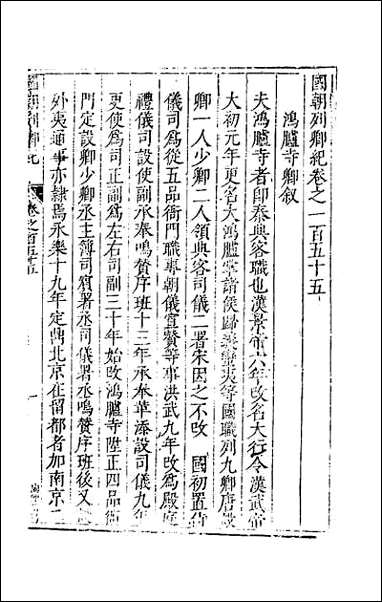 國朝列卿紀卷之一百五十五
鴻臚寺卿叙
夫鴻臚寺者即秦典客職也漢景帝六年改名大行令漢武帝
大初元年更名大鴻臚掌諸侯歸義蠻夷等國職列九卿唐設
卿一人少卿二人領典客司儀二署宋因之不改 國初置侍
儀司為從五品衙門職專朝儀宣贊等事洪武九年改為殿庭
禮儀司設使副承奉鳴贊序班十三年承奉革添設司儀九年
更使為司正副為左右司副三十年始改鴻臚寺陞正四品衙
門定設卿少卿丞主簿司賓署丞司儀署丞鳴贊序班後又
外夷通事亦隷焉永樂十九年定鼎北京在留都者加南京二
國朝列卿紀 卷之百五十五 一